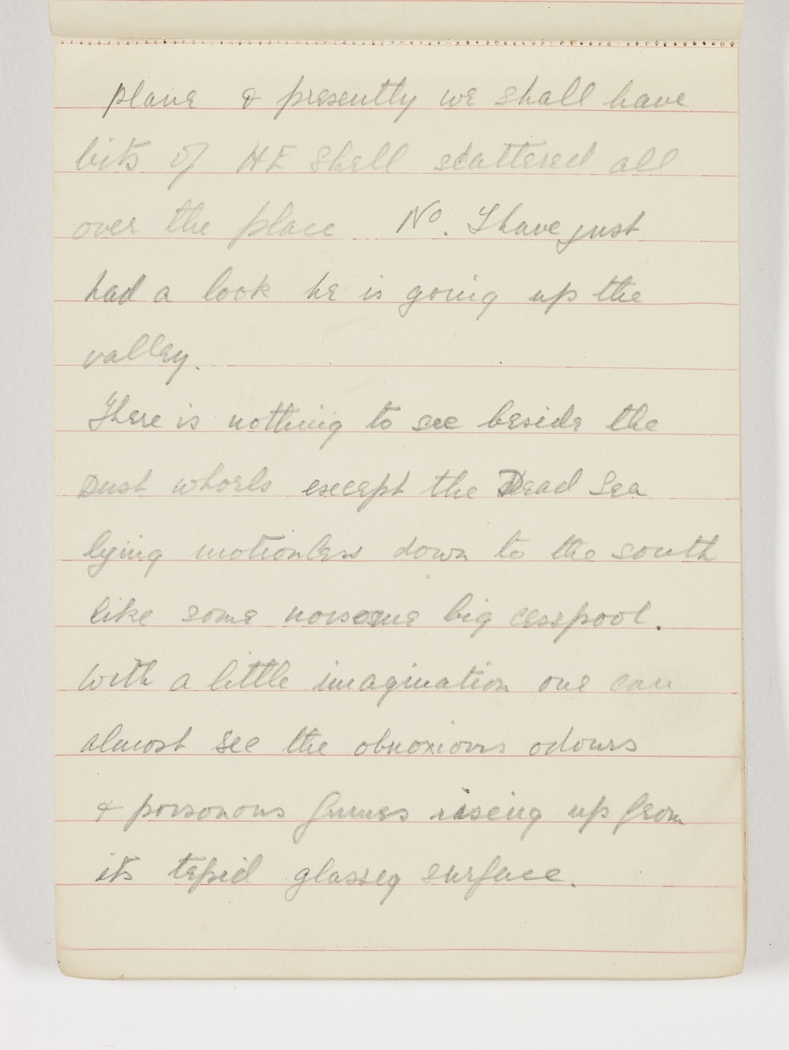 plane & presently we shall have
bits of HE shell scattered all
over the place No. I have just
had a look he is going up the
valley.
There is nothing to see beside the
dust whorls except the Dead Sea
lying motionless down to the south
like some noisome big cesspool.
With a little imagination one can
almost see the obnoxious odours
& poisonous fumes riseing up from
its tepid glassey surface.